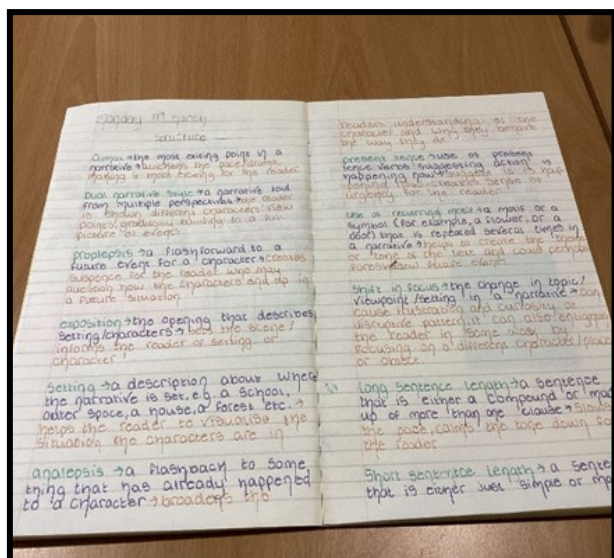 Monday 11th March
Structure
Climax → the most exciting point in a
narrative → quickens the pace/drama,
making it more exciting for the reader
Dual narrative style → a narrative told
from multiple perspectives → the reader
is shown different characters' view
points, gradually building to a full
picture of events
proplepsis → a flashforward to a
future event for a character → creates
suspense for the reader who may
question how the characters end up in
a future situation
exposition → the opening that describes
setting/characters → sets the scene/
informs the reader of setting or
character
setting → a description about where
the narrative is set, e.g. a school,
outer space, a house, a forest etc. →
helps the reader to visualise the
situation the characters are in
analepsis → a flashback to some
thing that has already happened
to a character → broadens the
readers understanding of the
character and why they
the way they
present tense → use of present
tense verbs suggesting action is
happening now → suggests it is hap
pening creates sense of
urgency for the reader
use of recurring motif → a motif or a
symbol (for example, a flower, or a
door) that is repeated several times in
a narrative → helps to create the
or tone of the text and could perhaps
foreshadow future events
Shift in focus → the change in topic/
viewpoint/setting in a narrative → can
cause frustration and curiosity at
disruptive pattern, it can also
the reader in some way by
focusing on a different character/place
or object
Long sentence length → a sentence
that is either a compound or made
up of more than one clause → slows
the pace, calms the tone down for
the reader
Short sentence length → a sente
that is either just simple or